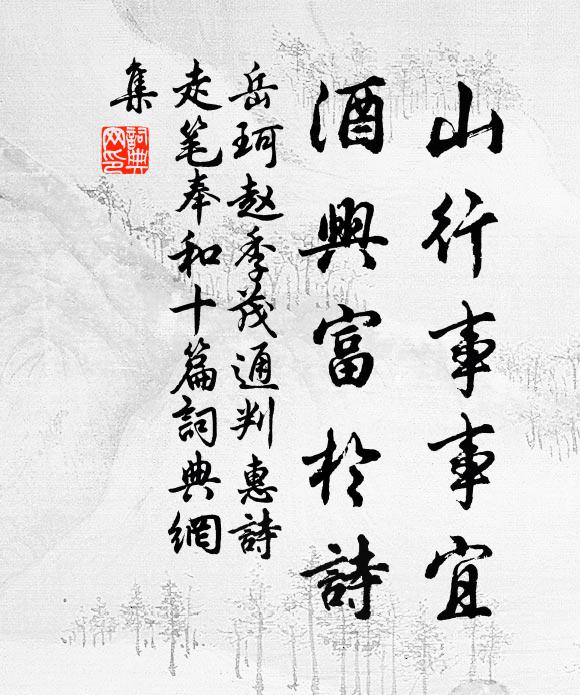 山行事事宜
酒興富於詩
岳珂趙季茂通判惠詩
走笔奉和十篇詞典網
集
詞典
网印